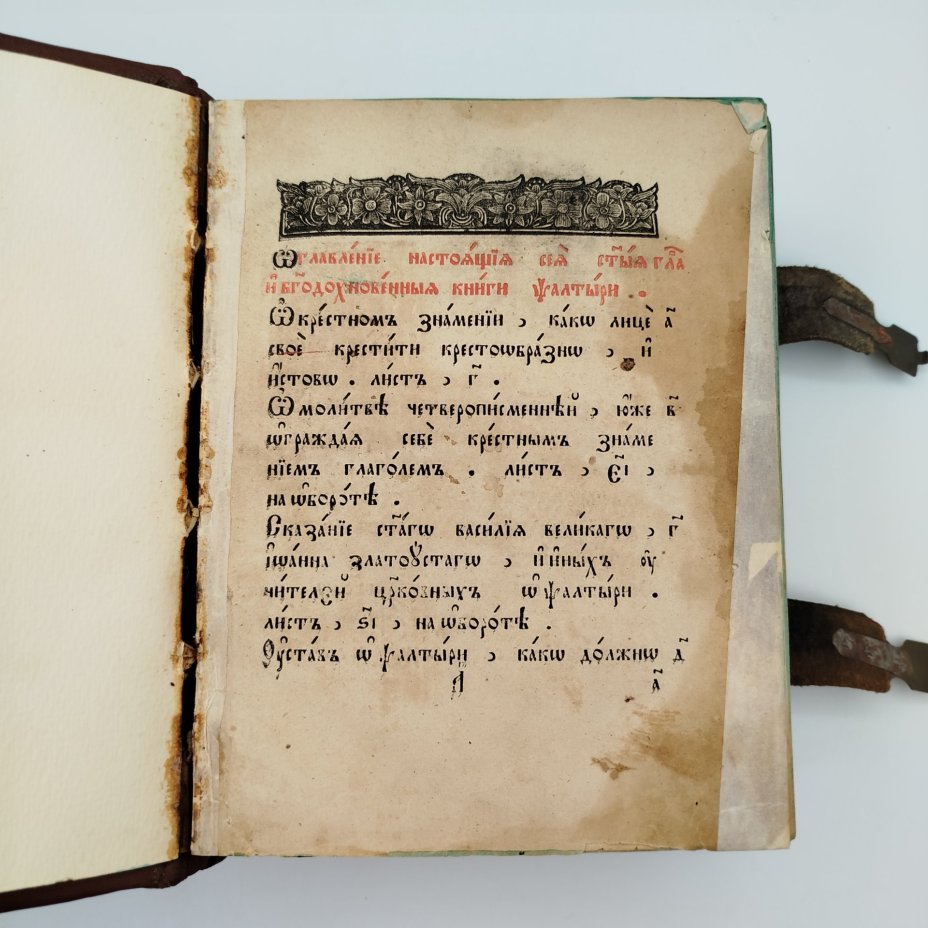 Ѡглавле́нїе настоѧ́щїѧ сеѧ̀ ст҃ы́ѧ гл҃а
и҆ бг҃одохнове́нныѧ кни́ги ѱалты́ри .
Ѽ кре́стномъ зна́менїи , ка́кѡ лицѐ а҃
своѐ крести́ти крестоѡбра́знѡ , и҆
и҆́стовѡ . ли́стъ , г҃ .
Ѽ моли́твѣ четверопи́сменнѣй , ю҆́же в҃
ѡ҆гражда́ѧ себѐ кре́стнымъ зна́ме
нїемъ глаго́лемъ . ли́стъ , є҃і ,
на ѡ҆боро́тѣ .
Сказа́нїе ст҃а́гѡ васи́лїѧ вели́кагѡ , г҃
і҆ѡа́нна златоꙋ́стагѡ , и҆ и҆ны́хъ ᲂу҆
чи́телей цр҃ко́вныхъ ѡ҆ ѱалты́ри .
ли́стъ , ѕ҃і , на ѡ҆боро́тѣ .
Оу҆ста́въ ѡ҆ ѱалты́ри , ка́кѡ до́лжнѡ д҃
а҃